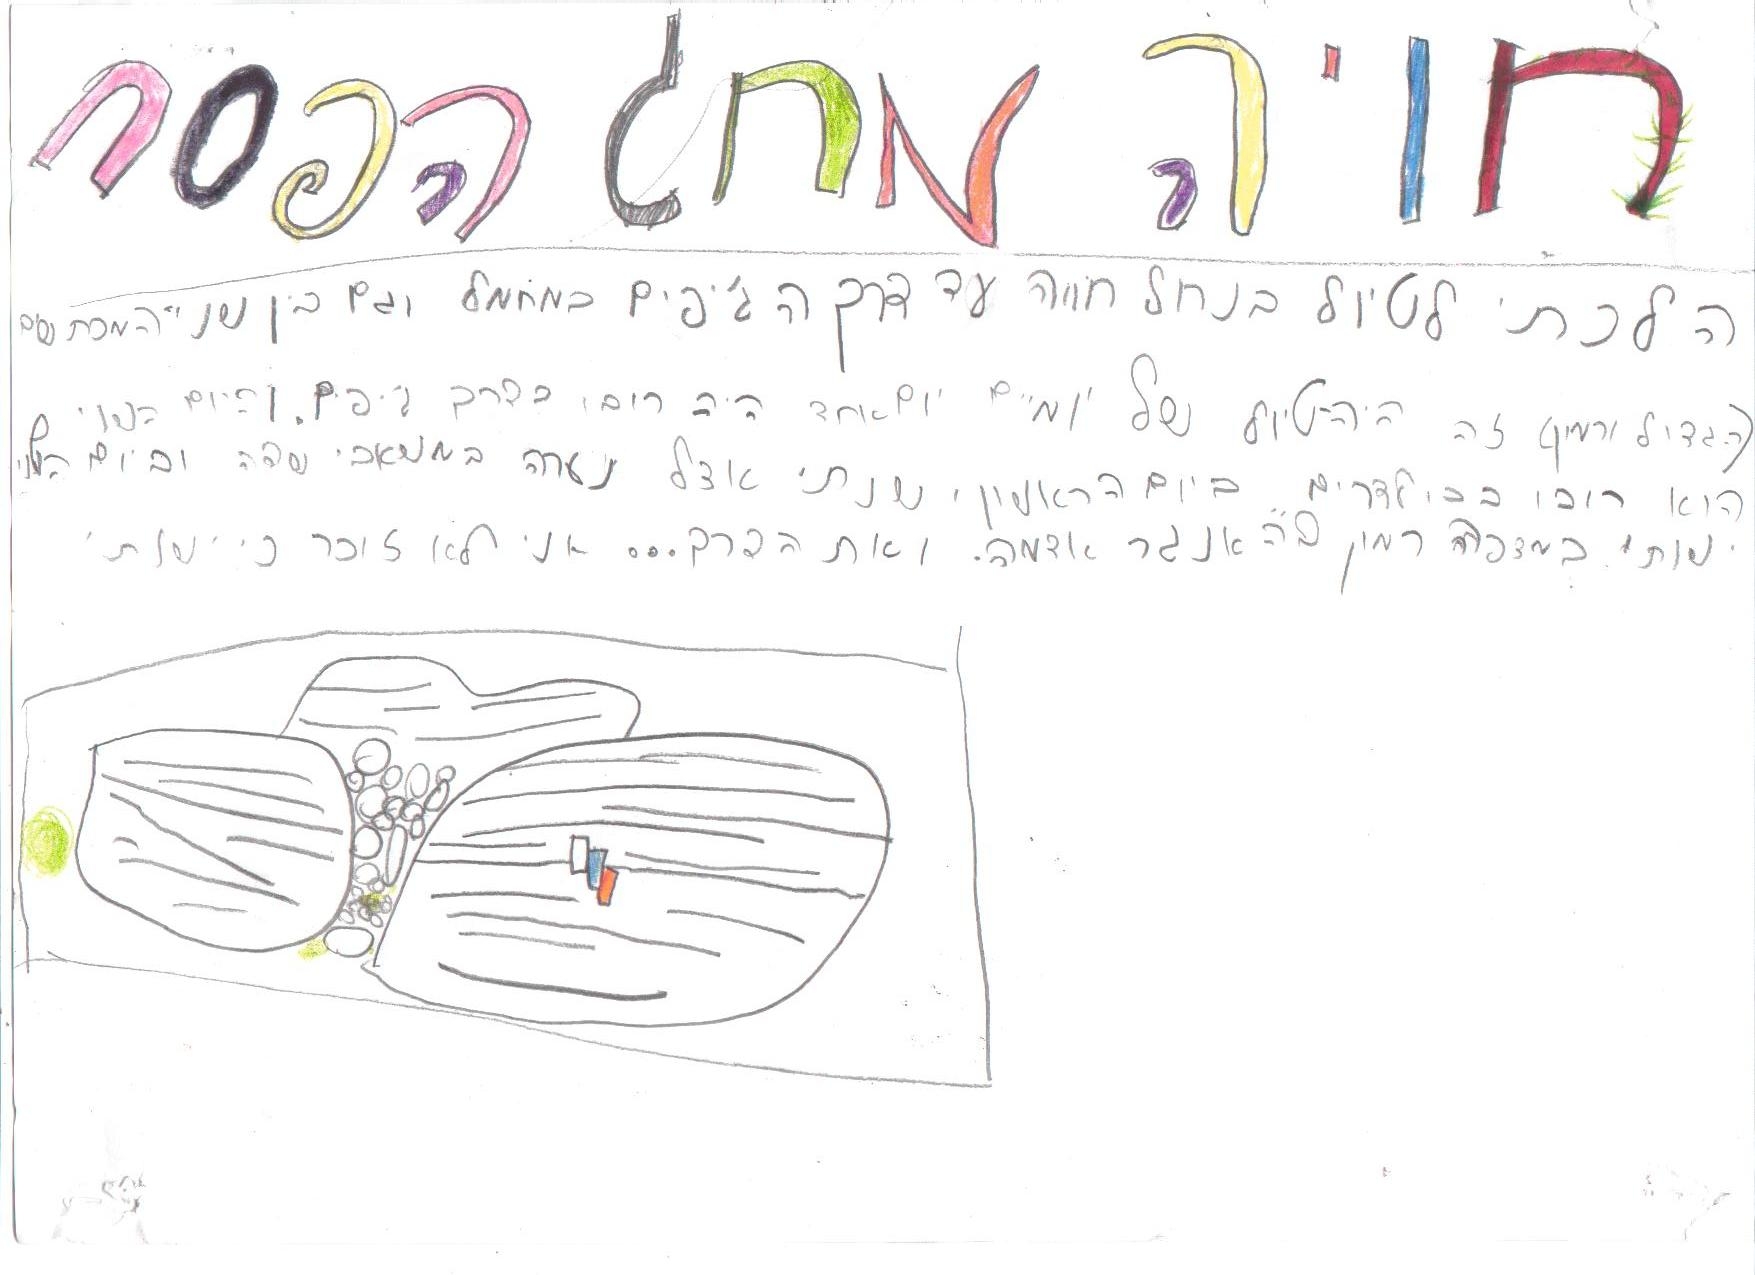 חויה מחג הפסח
הלכתי לטיול בנחל חווה עד דרך הג'יפים במחמל וגם בין שני המכתשים
(הגדול ורמון) זה היה טיול של יומיים יום אחד היה רובו בדרך ג'יפים. והיום השני
הוא רובו בבולדרים. ביום הראשון ישנתי אצל נערה במשאבי שדה וביום השני
ישנתי במצפה רמון בהאנגר אדמה. ואת הדרך... אני לא זוכר כי ישנתי